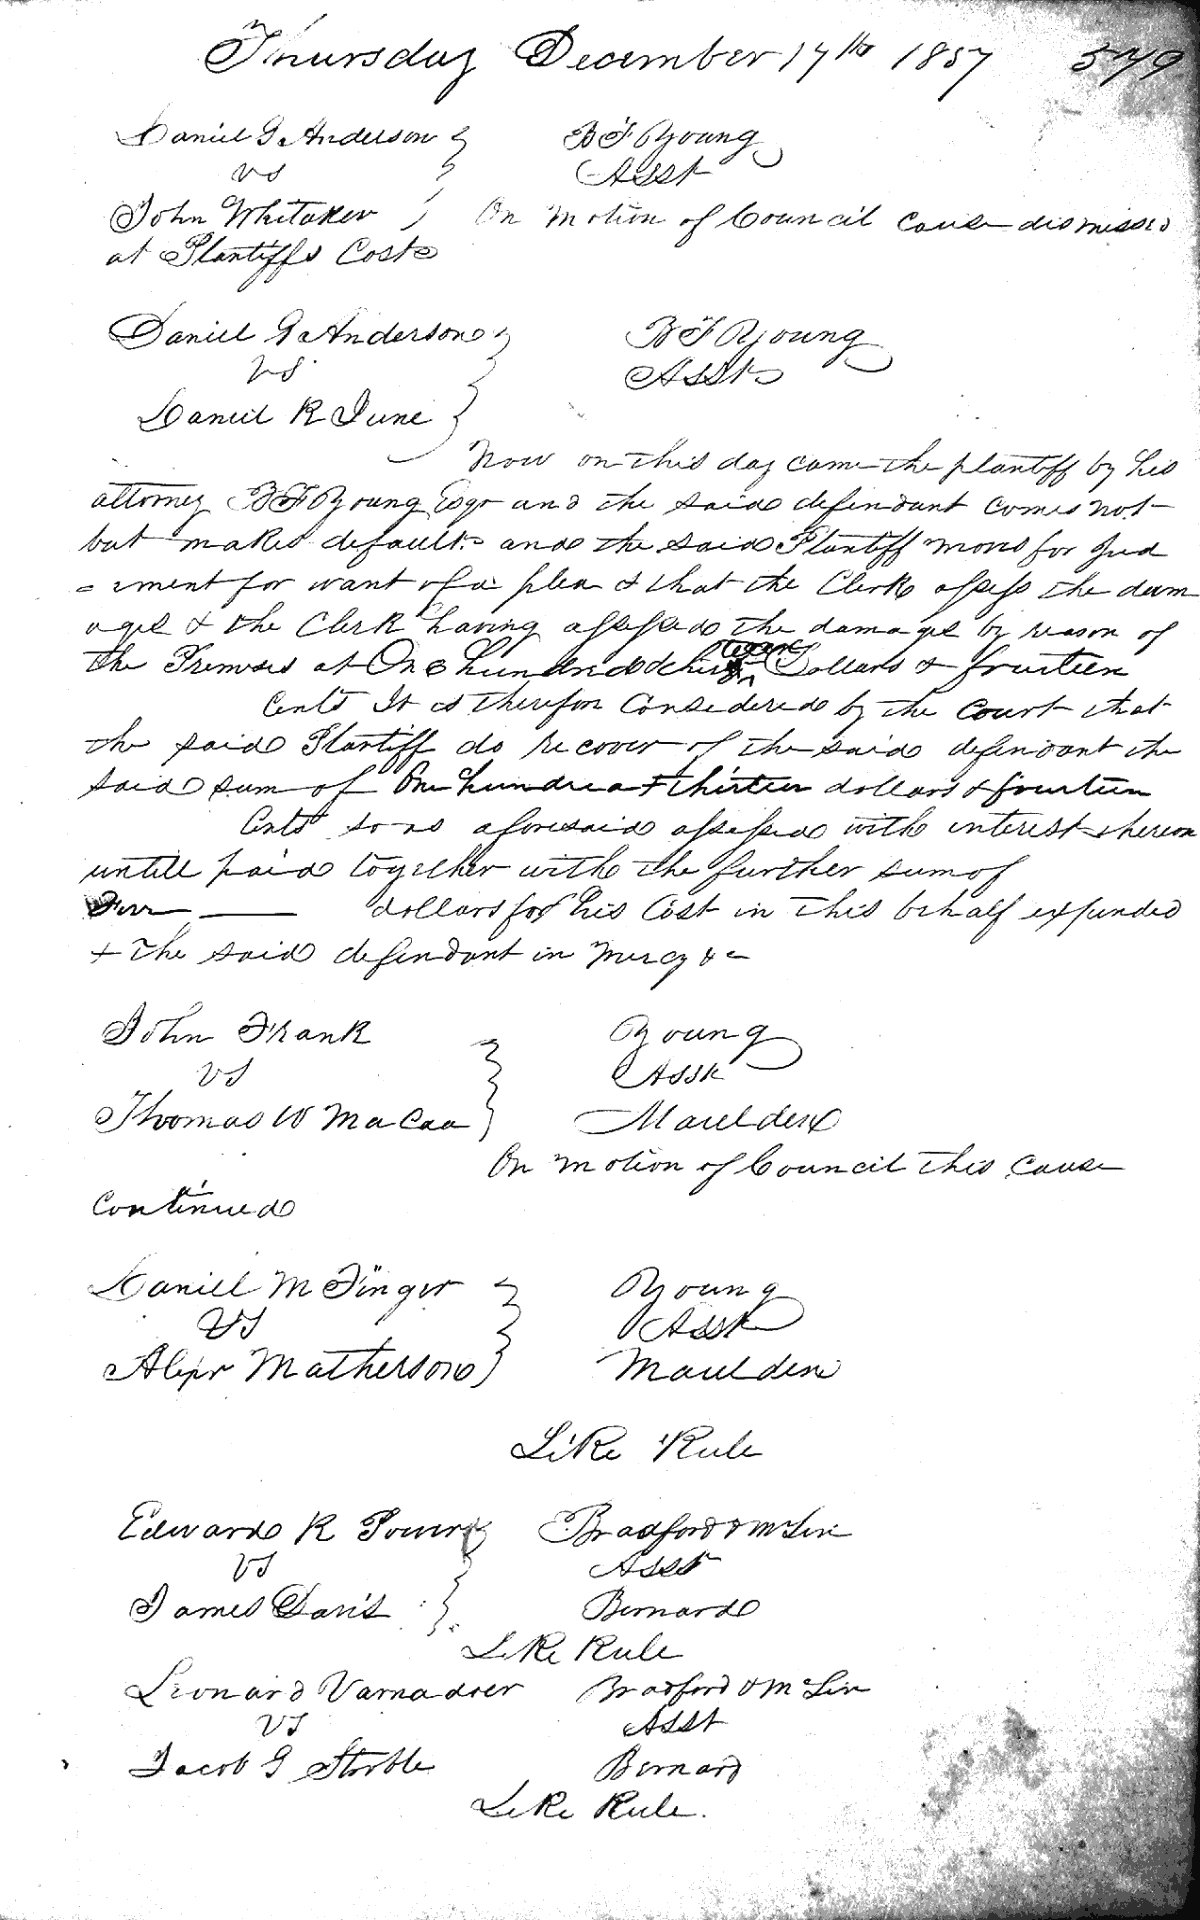 Thursday December 17th 1857 579
Daniel G Anderson B F Young
vs Asst
John Whitaker On motion of Council cause dismissed
at Plantiffs Costs
Daniel G Anderson B F Young
vs Asst
Daniel R June
Now on this day came the plantiff by his
attorney B F Young Esqr and the said defendant comes not
but makes default and the said Plantiff moves for Jud
=ment for want of a plea & that the Clerk assess the dam
ages & the Clerk having assessed the damages by reason of
the Premises at One hundred Dollars & fourteen
Cents It is therefor Considered by the court that
the said Plantiff do recover of the said defendant the
said sum of One hundred & thirteen dollars & fourteen
Cents so as aforesaid assessed with interest thereon
untill paid together with the further sum of
dollars for his Cost in this behalf expended
& the said defendant in mercy &c
John Frank Young
vs Asst
Thomas W MaCaa Maulden
On motion of Council this cause
Continued
Daniel M Finger Young
vs Asst
Alexr Matherson Maulden
Like Rule
Edward R Powers Bradford & McLin
vs Asst
James Davis Bernard
Like Rule
Leonard Varnadoer Bradford & McLin
vs Asst
Jacob G Stroble Bernard
Like Rule.